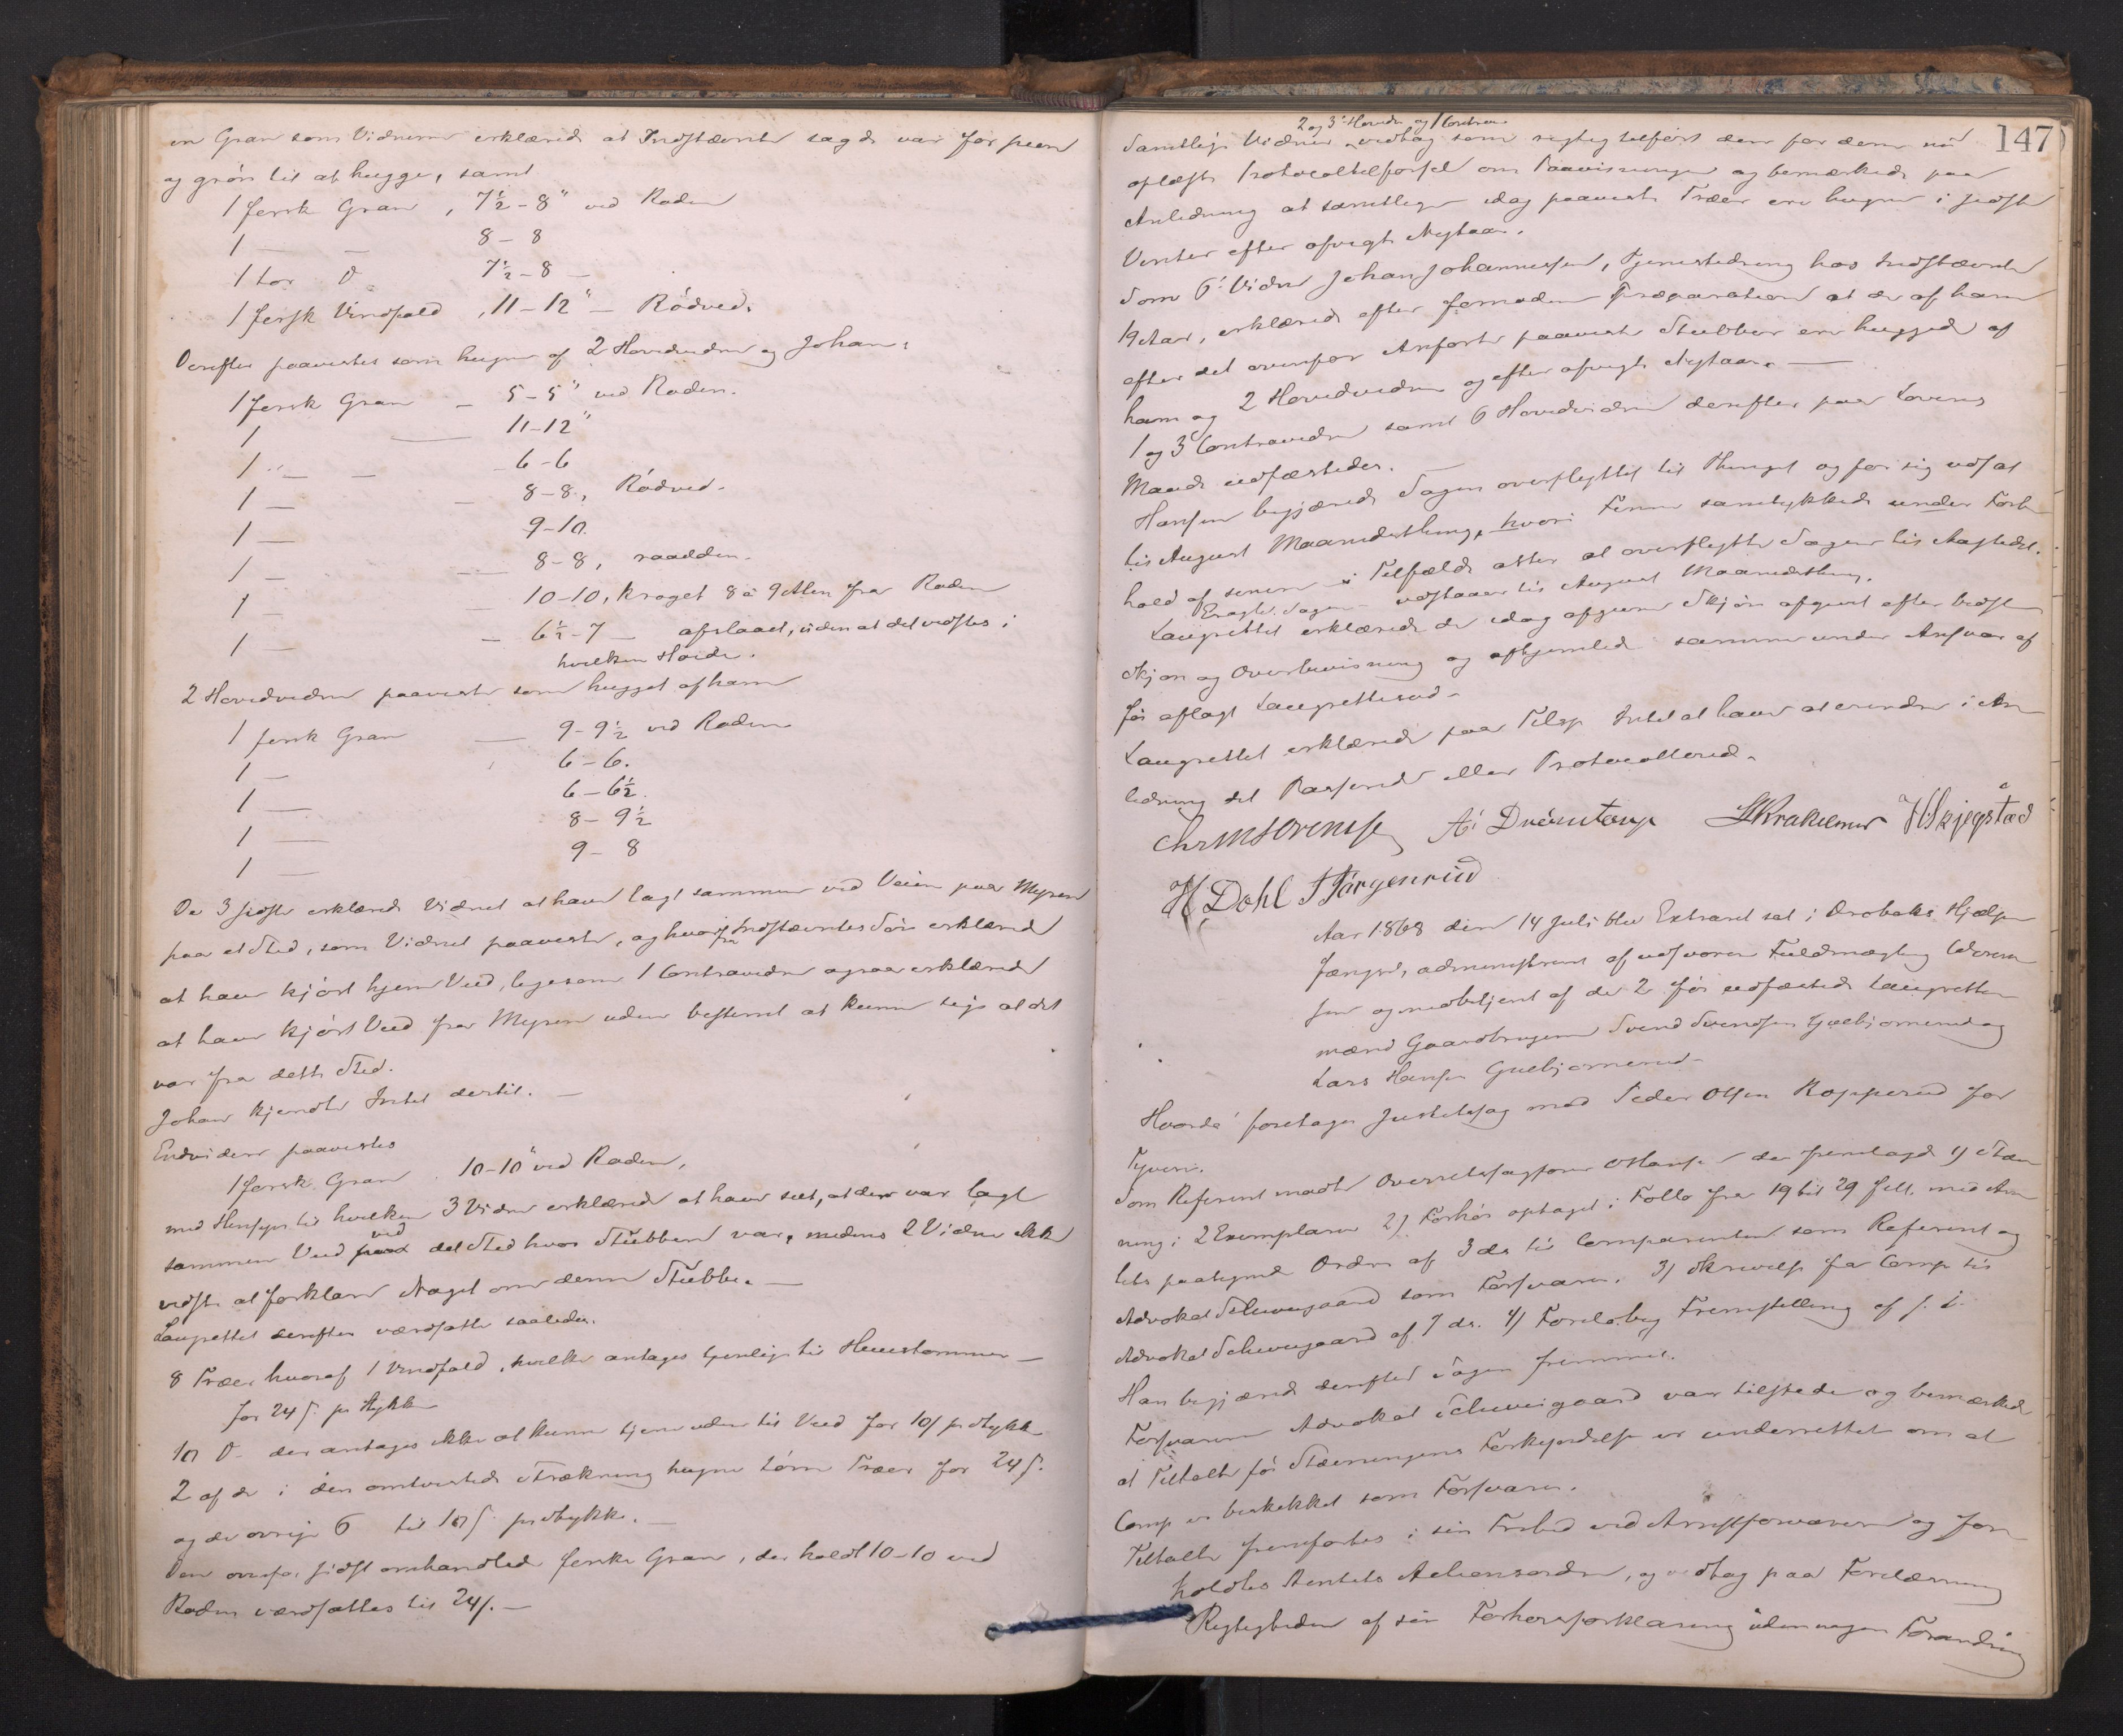 en Gran som Vidnerne erklærede at Indstævnte sagde var for pen
og grøn til at hugge, samt
1 fersk Gran, 7½-8" ved Roden
1 — — 8-8
1 tør D 7½-8 —
1 fersk Vindfald, 11-12" — Rødved.
Derefter paavistes som hugne af 2 Hovedvidne og Johan:
1 fersk Gran — 5-5" ved Roden.
1 — 11-12"
1 — — 6-6
1 — — 8-8, Rødved.
1 — 9-10.
1 — — 8-8, raadden.
1 — — 10-10, kroget 8 à 9 Alen fra Roden
1 — — 6½-7 — afslaaet, uden at det vidstes i
hvilken Høide.
2 Hovedvidne paaviste som hugget af ham
1 fersk Gran — 9-9½ ved Roden
1 — 6-6.
1 — 6-6½.
1 — 8-9½
1 — 9-8
De 3 sidste erklærede Vidnet at have lagt sammen ved Veien paa Myren
paa et Sted, som Vidnet paaviste, og hvorfra Indstævntes Søn erklærede
at have kjørt hjem Ved, ligesom 1 Contravidne ogsaa erklærede
at have kjørt Ved fra Myren uden bestemt at kunne sige at det
var fra dette Sted.
Johan kjendte Intet dertil. —
Endvidere paavistes
1 fersk Gran 10-10" ved Roden,
med Hensyn til hvilken 3 Vidne erklærede at have seet, at der var lagt
sammen Ved ved det Sted hvor Stubben var, medens 2 Vidne ikke
vidste at forklare Noget om denne Stubbe. —
Laugrettet derefter værdsatte saaledes.
8 Træer hvoraf 1 Vindfald, hvilke antages tjenlige til Huustømmer —
for 24 s. pr Stykke
10 D. der antages ikke at kunne tjene uden til Ved for 10 s pr Stykke
2 af de i den omtvistede Strækning hugne tørre Træer for 24 s.
og de øvrige 6 til 10 s. pr Stykke. —
Den ovenfor sidst omhandlede ferske Gran, der holdt 10-10 ved
Roden værdsattes til 24 s. —
147
2 og 3 Hovedv. og 1 Contrav.
Samtlige Vidner vedtog som rigtig tilført den for dem nu
oplæste Protocoltilførsel om Paavisningen og bemærkede paa
Anledning at samtlige idag paaviste Træer ere hugne i sidste
Vinter efter afvigte Nytaar.
Som 6' Vidne Johan Johannesen, Tjenestedreng hos Indstævnte
19 Aar, erklærede efter fornøden Præparation at de af ham
efter det ovenfor Anførte paaviste Stubber ere huggede af
ham og 2 Hovedvidne og efter afvigte Nytaar. —
1 og 3 Contravidne samt 6 Hovedvidne derefter paa Lovens
Maade edfæstedes.
Hansen begjærede Sagen overflyttet til Thinget og for sig udsat
til August Maanedsthing, hvori Finne samtykkede under Forbe-
hold af senere i Tilfælde atter at overflytte Sagen til Aastedet.
Eragt. Sagen udstaaer til August Maanedsthing.
Laugrettet erklærede de idag afgivne Skjøn afgivet efter bedste
Skjøn og Overbeviisning og afhjemlede samme under Ansvar af
før aflagt Laugretteseed.
Laugrettet erklærede paa Tilsp. Intet at have at erindre i An-
ledning det Passerede eller Protocollerede.
Chr M Sørensen A: Drømtorp S Krakeneur H Skjegstad
H Dahl T Tørgenrud
Aar 1868 den 14 Juli blev Extraret sat i Drøbaks Hjælpe
fængsel, administreret af edsvoren Fuldmægtig
sen og medbetjent af de 2 før edfæstede Laugrettes
mænd Gaardbruger Svend Svendsen Gulbjørnerud og
Lars Hansen Gulbjørnerud.
Hvorda' foretages Justitssag mod Peder Olsen Kopperud for
Tyveri.
Som Referent mødte Overretssagfører Hansen der fremlagde 1) Stæv-
ning i 2 Exemplarer 2) Forhør optaget i Follo fra 19 til 29 f.M. med Am-
tets paategnede Ordre af 3 ds til Comparenten som Referent og
Advokat Schweigaard som Forsvarer. 3) Skrivelse fra Comp. til
Advokat Schweigaard af 7 ds. 4) Foreløbig Fremstilling af s. D.
Han begjærede derefter Sagen fremmet.
Forsvareren Advokat Schweigaard var tilstede og bemærkede
at Tiltalte før Stævningens Forkyndelse er underrettet om at
Comp er beskikket som Forsvarer.
Tiltalte fremførtes i sin Frihed ved Arrestforvareren og fore-
holdtes Amtets Actionsordre, og vedtog paa Forelæsning
Rigtigheden af sin Forhørsforklaring uden nogen Forandring